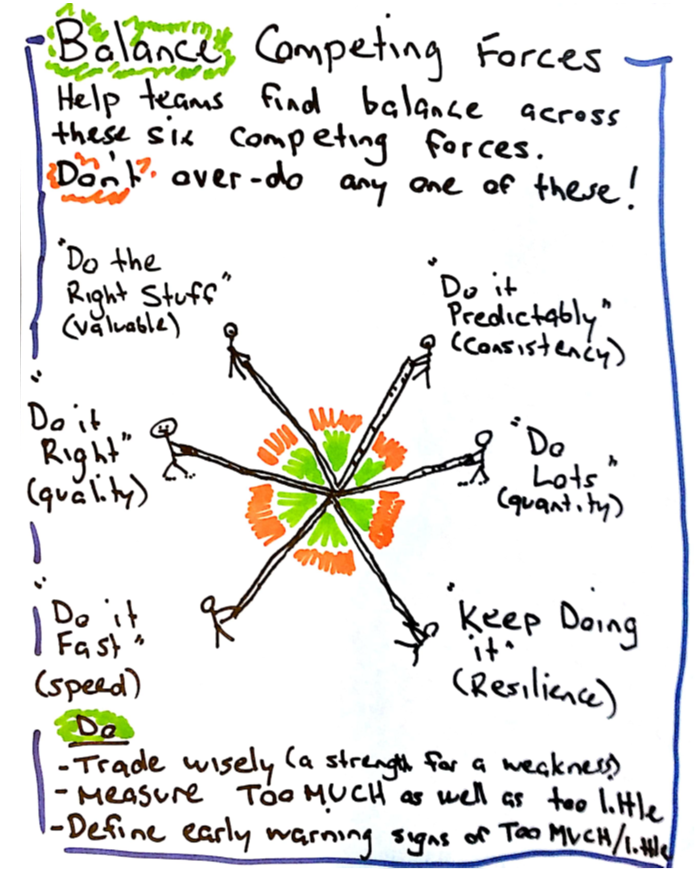 Balance Competing Forces
Help teams find balance across
these six competing forces.
Don't over-do any one of these!
"Do the
Right Stuff"
(valuable)
"Do it
Predictably"
(consistency)
"Do it
Right"
(quality)
"Do
Lots"
(quantity)
"Do it
Fast"
(speed)
"Keep Doing
it"
(Resilience)
Do
- Trade wisely (a strength for a weakness)
- Measure TOO MUCH as well as too little
- Define early warning signs of TOO MUCH/little